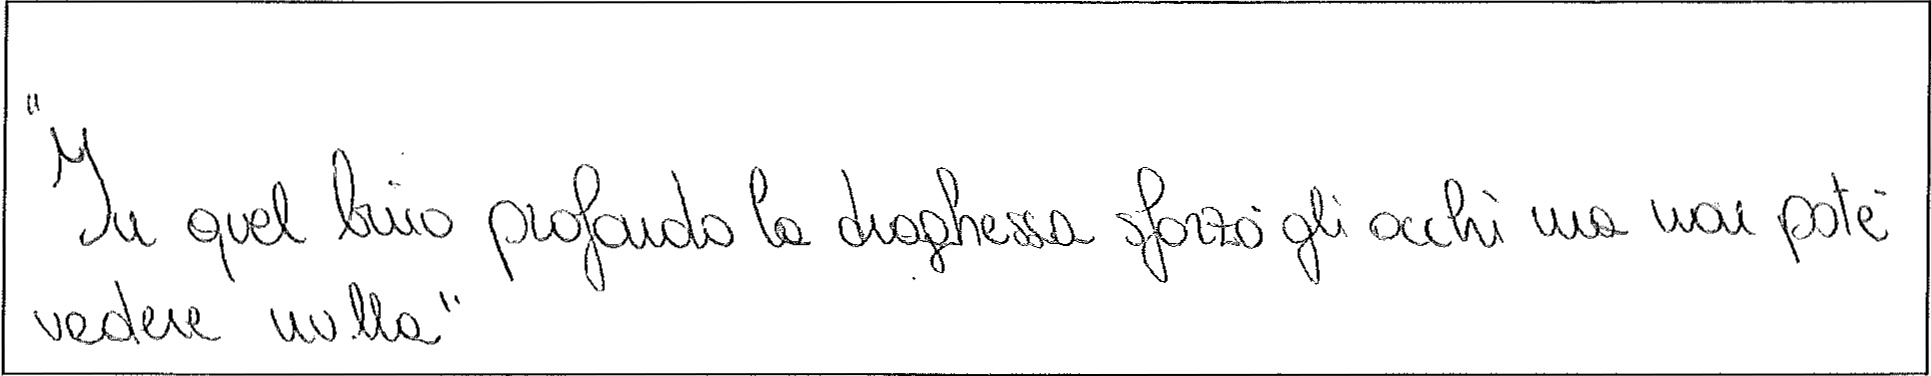 "In quel buio profondo la draghessa sforzò gli occhi ma non poté
vedere nulla"